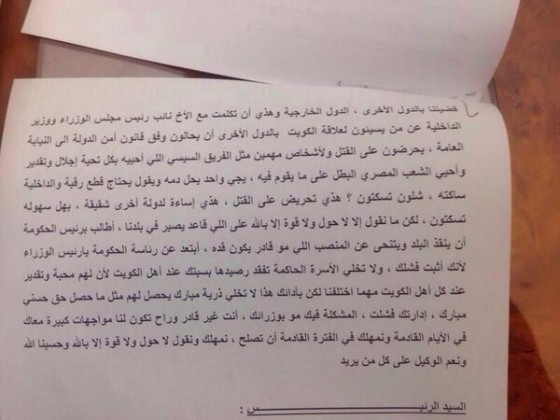 قضيتنا بالدول الأخرى ، الدول الخارجية وهذي أن تكلمت مع الأخ نائب رئيس مجلس الوزراء ووزير
الداخلية عن من يسيئون لعلاقة الكويت بالدول الأخرى أن يحالون وفق قانون أمن الدولة الى النيابة
العامة ، يحرضون على القتل ولأشخاص مهمين مثل الفريق السيسي اللي أحييه بكل تحية إجلال وتقدير
وأحيي الشعب المصري البطل على ما يقوم فيه ، يجي واحد يحل دمه ويقول يحتاج قطع رقبة والداخلية
ساكته ، شلون تسكتون ؟ هذي تحريض على القتل ، هذي إساءة لدولة أخرى شقيقة ، بهل سهوله
تسكتون ، لكن ما نقول إلا لا حول ولا قوة إلا بالله على اللي قاعد يصير في بلدنا ، أطالب برئيس الحكومة
أن ينقذ البلد ويتنحى عن المنصب اللي مو قادر يكون قده ، أبتعد عن رئاسة الحكومة يارئيس الوزراء
لأنك أثبت فشلك ، ولا تخلي الأسرة الحاكمة تفقد رصيدها بسبتك عند أهل الكويت لأن لهم محبة وتقدير
عند كل أهل الكويت مهما اختلفنا لكن بأدائك هذا لا تخلي ذرية مبارك يحصل لهم مثل ما حصل حق حسني
مبارك ، إدارتك فشلت ، المشكلة فيك مو بوزرائك ، أنت غير قادر وراح تكون لنا مواجهات كبيرة معاك
في الأيام القادمة ونمهلك في الفترة القادمة أن تصلح ، نمهلك ونقول لا حول ولا قوة إلا بالله وحسبنا الله
ونعم الوكيل على كل من يريد
السيد الرئيـــــــــــــــــــــــــــــــس :